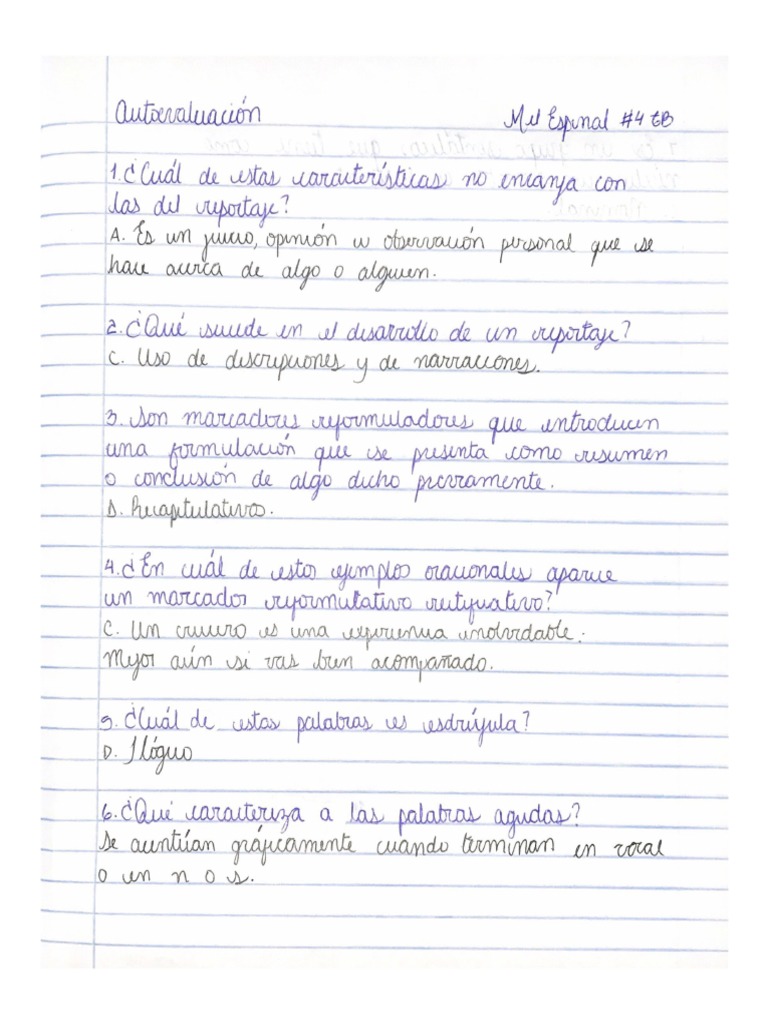 Autoevaluación
Mel Espinal #4 6B
1.¿Cuál de estas características no encanja con
las del reportaje?
A. Es un juicio, opinión u observación personal que se
hace acerca de algo o alguien.
2.¿Qué sucede en el desarrollo de un reportaje?
C. Uso de descripciones y de narraciones.
3. Son marcadores reformuladores que introducen
una formulación que se presenta como resumen
o conclusión de algo dicho previamente.
D. Recapitulativo.
4.¿En cuál de estos ejemplos oracionales aparece
un marcador reformulativo rectificativo?
C. Un crucero es una experiencia inolvidable.
Mejor aún si vas bien acompañado.
5. ¿Cuál de estas palabras es esdrújula?
D. Ilógico
6.¿Qué caracteriza a las palabras agudas?
Se acentúan gráficamente cuando terminan en vocal
o en n o s.